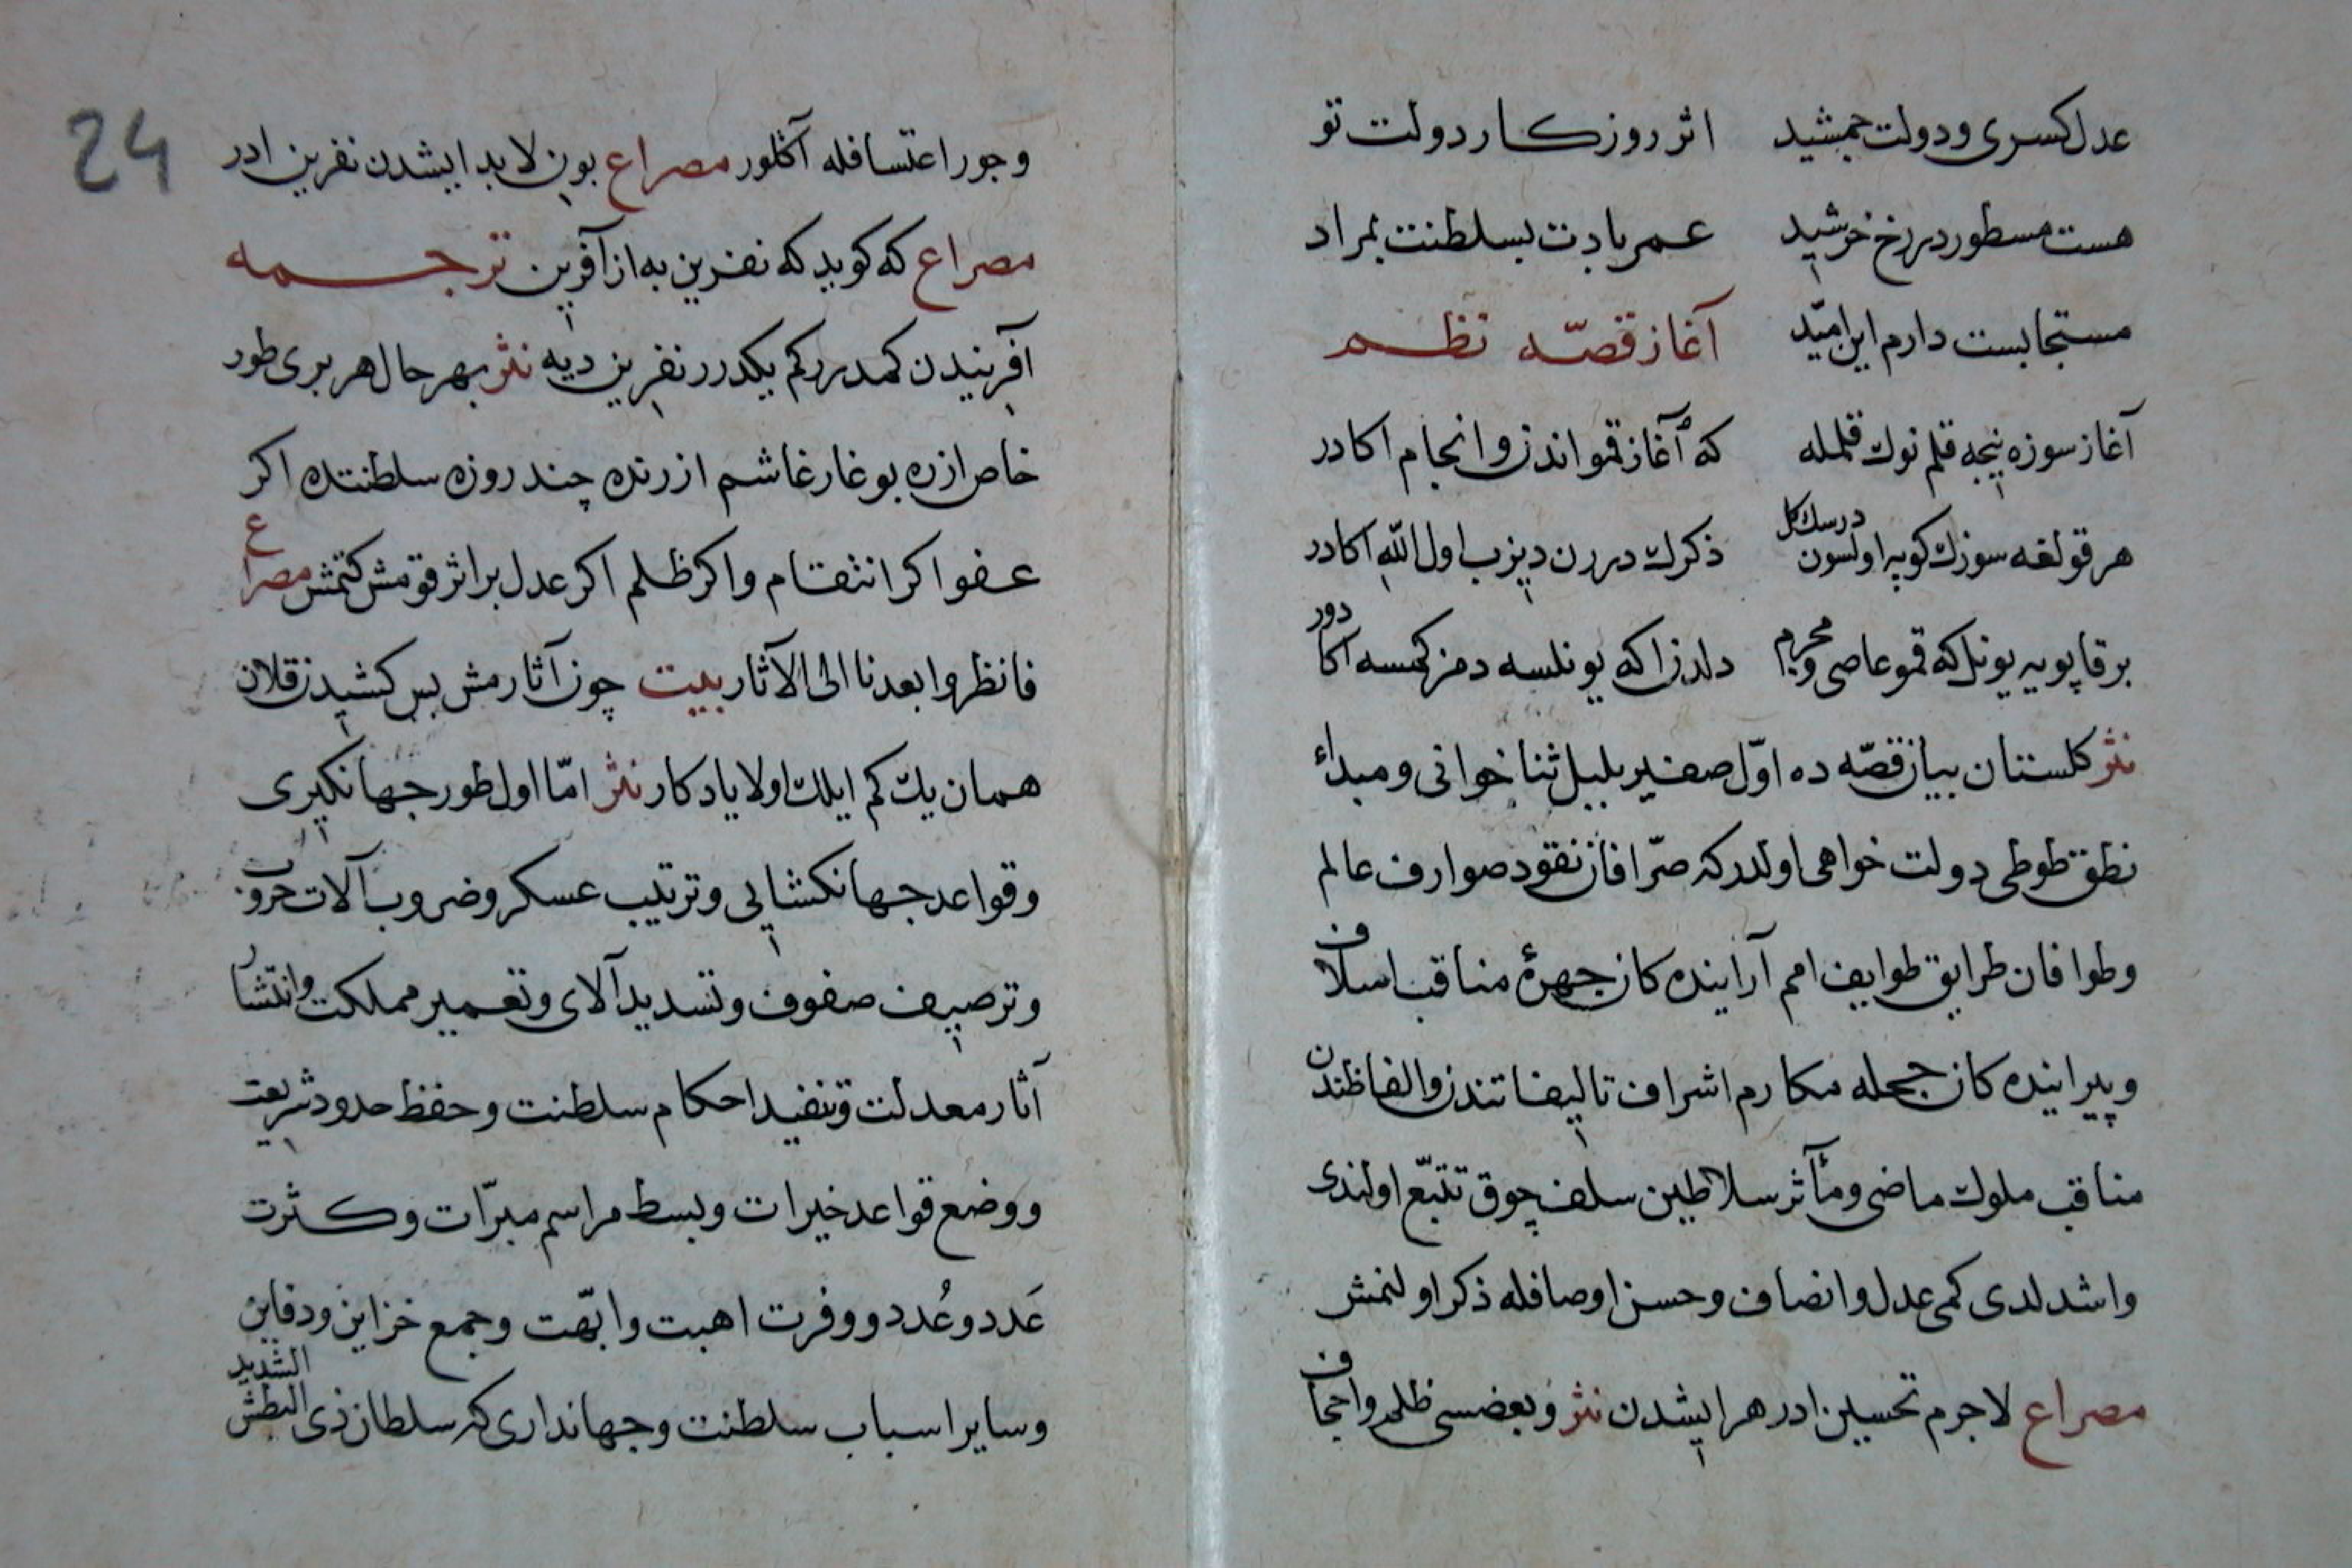 عدل كسرى و دولت جمشيد اثر روزكار دولت تو
هست مسطور در رخ خرشيد عمر بادت بسلطنت بمراد
مستجابست دارم اين اميّد آغاز قصّه نظم
آغاز سوزه نيجه قلم نوك قلمله كه آغاز قمو اندن و انجام اكا در
هر قولغه سوزك كوپه اولسون درسك كل ذكرك دررن ديزب اول اللّه اكا در
بر قاپويه يونل كه قمو عاصى و محرم دلدن اكه يونلسه دمز كمسه اكا دور
نثر كلستان بيان قصّه ده اوّل صفير بلبل ثنا خوانى و مبدأ
نطق طوطى دولت خواهى اولدر كه صرّافان نقود صوارف عالم
و طوافان طرايق طوايف امم آراينده كان چهرهٔ مناقب اسلاف
و پيراينده كان حجله مكارم اشراف تاليفاتندن و الفاظندن
مناقب ملوك ماضى و مآثر سلاطين سلف چوق تتبّع اولندى
و اشدلدى كمى عدل و انصاف و حسن اوصافله ذكر اولنمش
مصراع لاجرم تحسين ادر هر ايشدن نثر و بعضسى ظلم و اجحاف
24
و جور اعتسافله آكلور مصراع بون لابد ايشدن نفرين ادر
مصراع كه كويد كه نفرين به از آفرين ترجمه
آفريندن كمدرر كم يكدرر نفرين ديه نثر بهر حال هر برى طور
خاص ازره بو غار غاشم ازرنده چند روزه سلطنتده اكر
عفو اكر انتقام و اكر ظلم اكر عدل بر اثر قومش كتمش مصراع
فانظروا بعدنا الى الآثار بيت چون آثارمش بس كشيدن قلان
همان يك كم ايلك اولا يادكار نثر امّا اول طور جهانكيرى
و قواعد جهانكشايى و ترتيب عسكر و ضروب آلات حروب
و ترصيف صفوف و تسديد آلاى و تعمير مملكت و انتشار
آثار معدلت و تنفيد احكام سلطنت و حفظ حدود شريعت
و وضع قواعد خيرات و بسط مراسم مبرّات و كثرت
عَدد و عُدد و وفرت اهبت و ابّهت و جمع خزاين و دفاين
و ساير اسباب سلطنت و جهاندارى كه سلطان ذى البطش الشديد